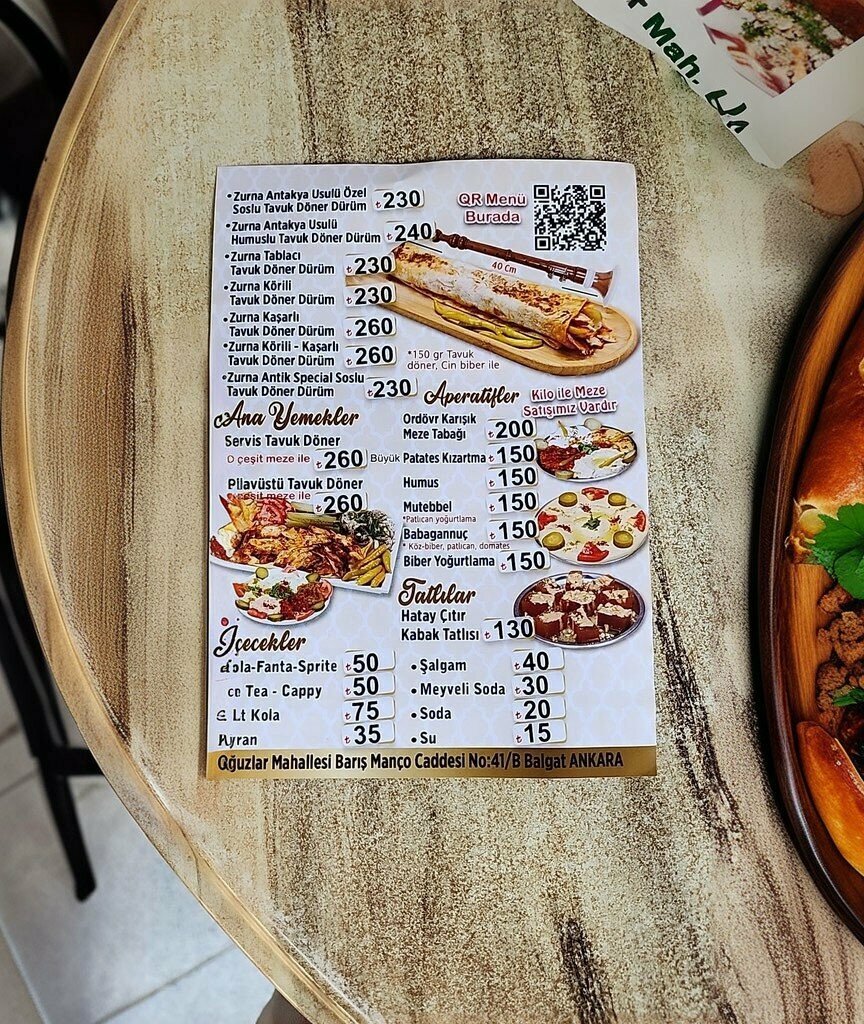 r Mah.
• Zurna Antakya Usulü Özel
Soslu Tavuk Döner Dürüm ₺230
• Zurna Antakya Usulü
Humuslu Tavuk Döner Dürüm ₺240
• Zurna Tablacı
Tavuk Döner Dürüm ₺230
• Zurna Körili
Tavuk Döner Dürüm ₺230
• Zurna Kaşarlı
Tavuk Döner Dürüm ₺260
• Zurna Körili - Kaşarlı
Tavuk Döner Dürüm ₺260
• Zurna Antik Special Soslu
Tavuk Döner Dürüm ₺230
QR Menü
Burada
40 Cm
*150 gr Tavuk
döner, Cin biber ile
Ana Yemekler
Servis Tavuk Döner
çeşit meze ile ₺260
Pilavüstü Tavuk Döner
çeşit meze ile ₺260
Aperatifler
Kilo ile Meze
Satışımız Vardır
Ordövr Karışık
Meze Tabağı ₺200
Büyük Patates Kızartma ₺150
Humus ₺150
Mutebbel ₺150
*Patlıcan yoğurtlama
Babagannuç ₺150
* Köz-biber, patlıcan, domates
Biber Yoğurtlama ₺150
Tatlılar
Hatay Çıtır
Kabak Tatlısı ₺130
İçecekler
ola-Fanta-Sprite ₺50
Tea - Cappy ₺50
Lt Kola ₺75
yran ₺35
• Şalgam ₺40
• Meyveli Soda ₺30
• Soda ₺20
• Su ₺15
Oğuzlar Mahallesi Barış Manço Caddesi No:41/B Balgat ANKARA